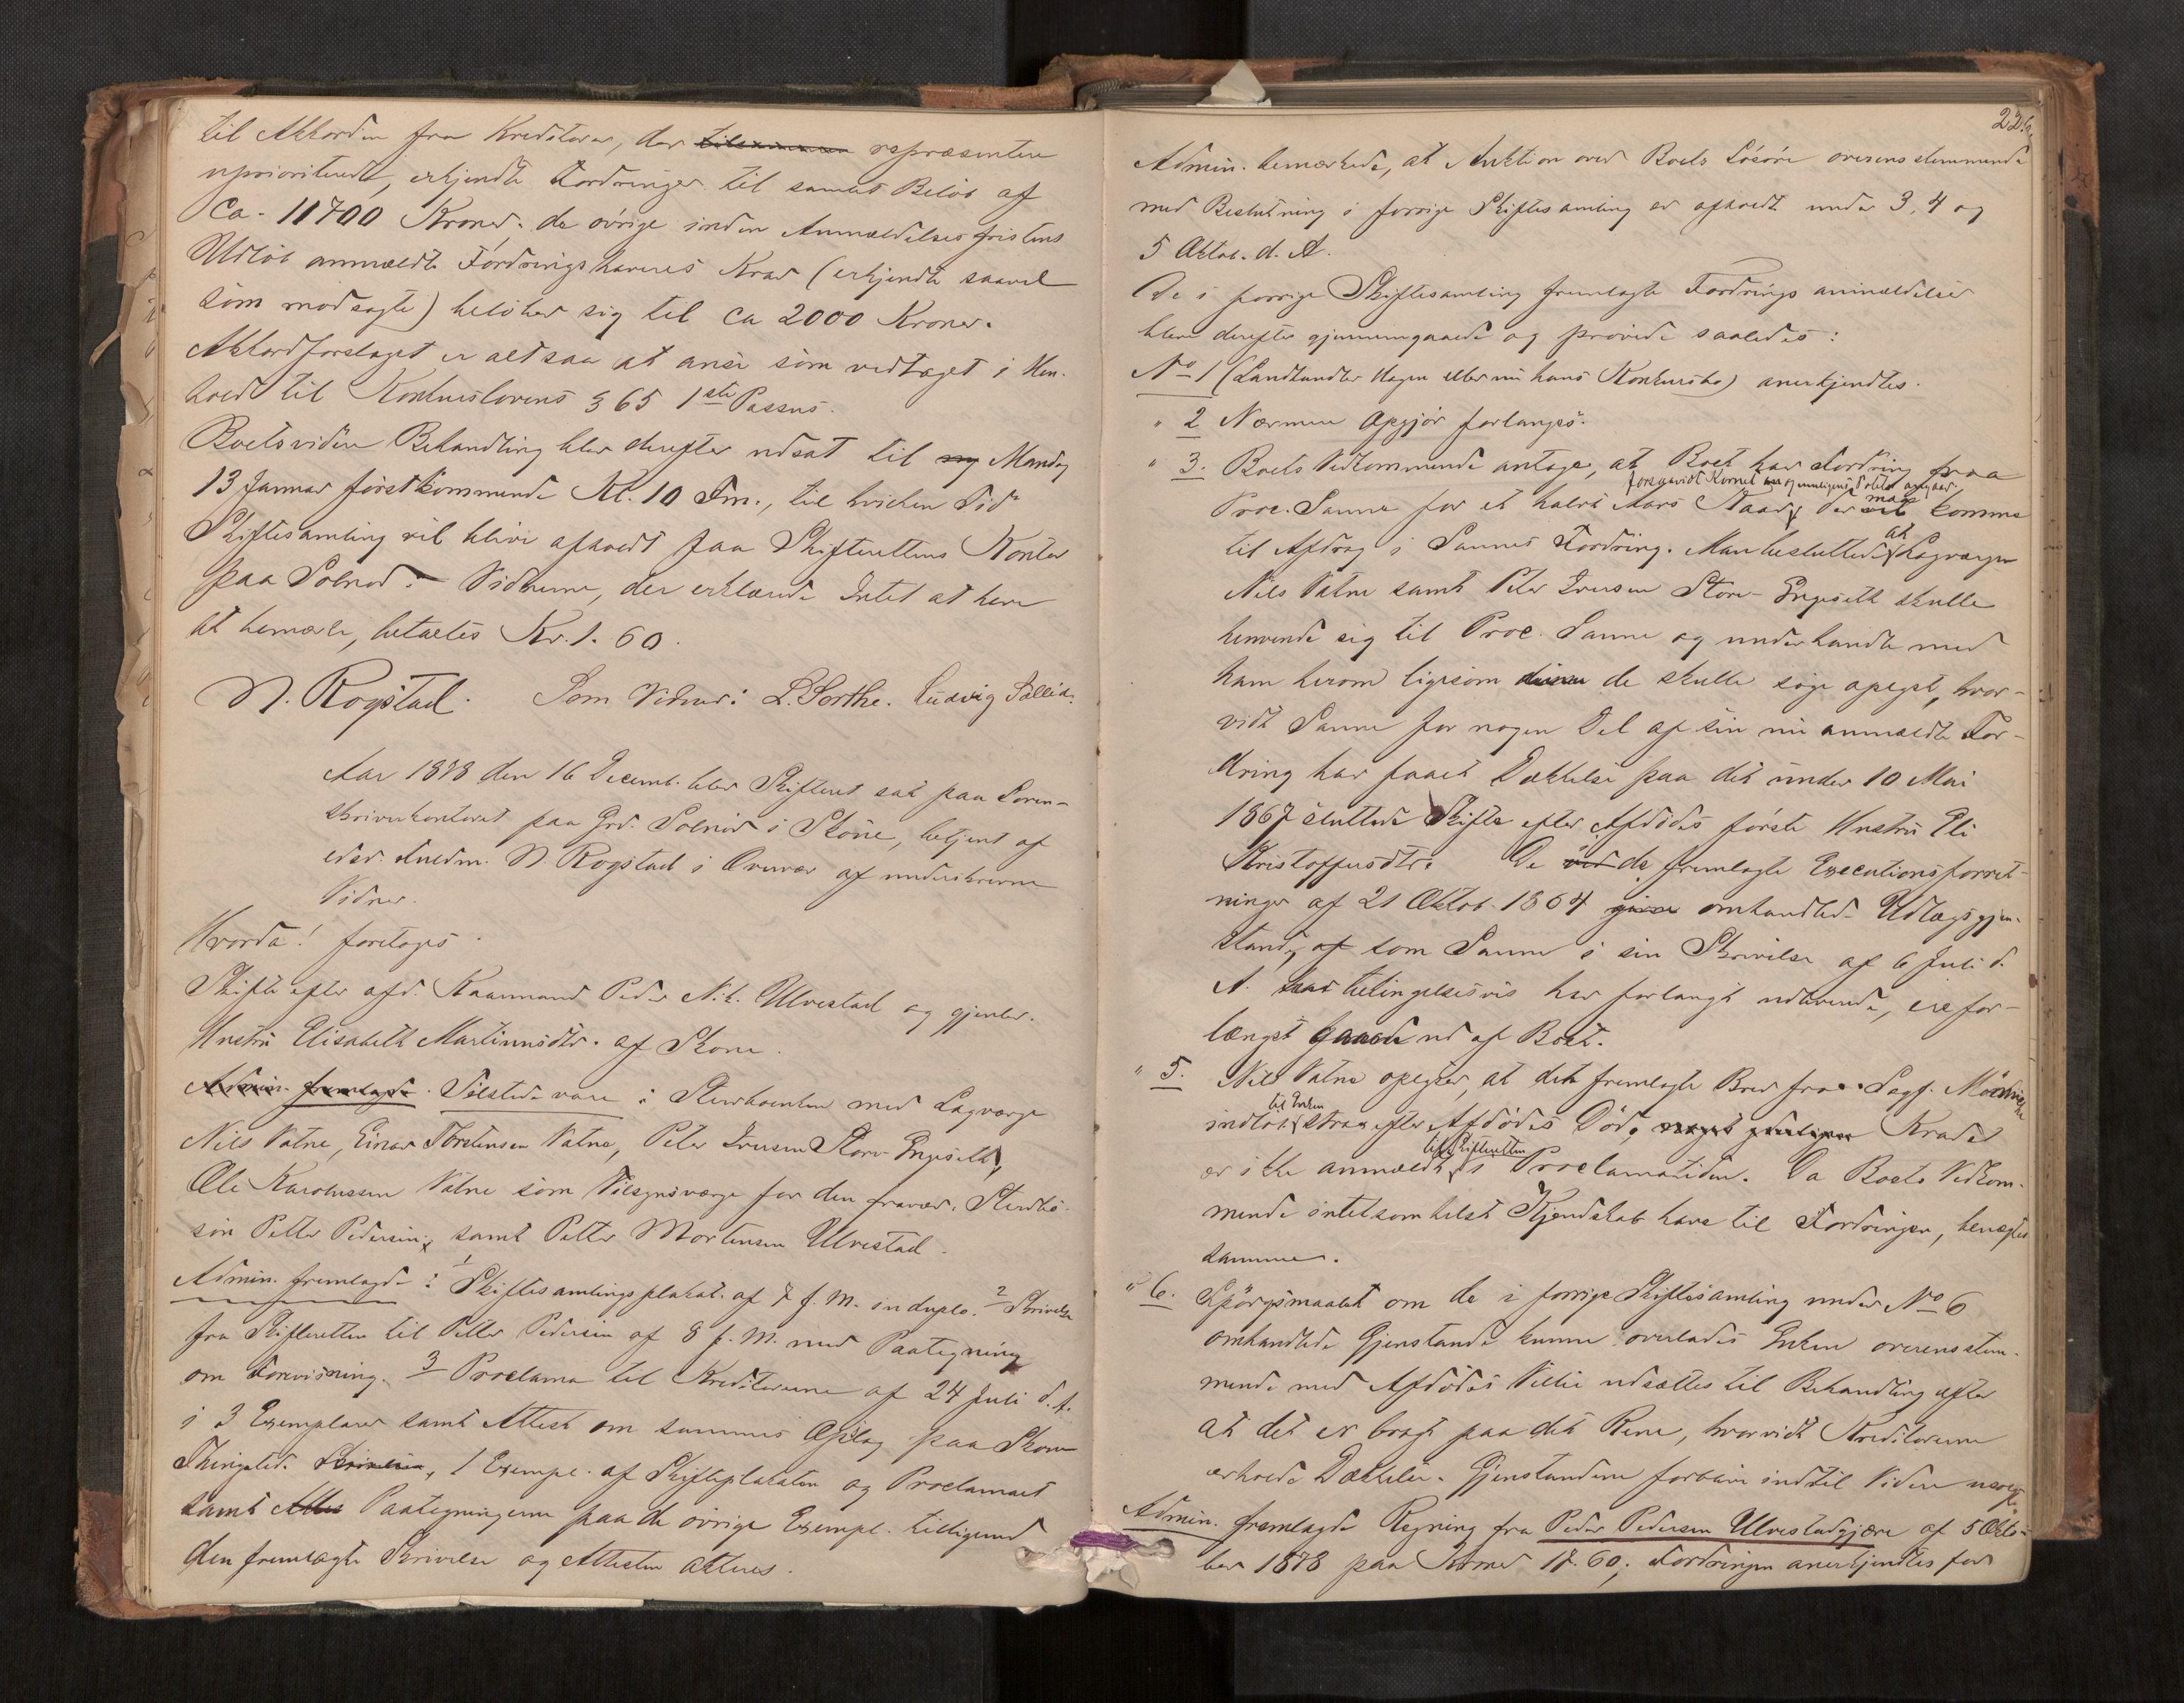 til Akkorden fra Kreditorer, der tilsammen repræsentere
uprioriterede, erkjendte Fordringer til samlet Beløb af
Ca. 11700 Kroner; de øvrige inden Anmældelsesfristens
Udløb anmældte Fordringshaveres Krav (erkjendte saavel
som modsagte) beløber sig til ca 2000 Kroner.
Akkordforslaget er altsaa at anse som vedtaget i Hen-
hold til Konkurslovens § 65 1ste Passus.
Boets videre Behandling blev derefter udsat til Mandag
13 Januar førstkommende Kl. 10 Fm., til hvilken Tid
Skiftesamling vil blive afholdt paa Skifterettens Kontor
paa Solnør. Vidnerne, der erklærede Intet at have
at bemærke, betaltes Kr. 1. 60.
N. Rogstad. Som Vidner: L. Sorthe. Ludvig
Aar 1878 den 16 Decemb. blev Skifteret sat paa Soren-
skriverkontoret paa Grd. Solnør i Skoue, betjent af
edsv. Fuldm. N. Rogstad i Overvær af underskrevne
Vidner.
Hvorda! foretoges
Skifte efter afd. Kaarmand Peder N. Ulvestad og gjenlev.
Hustru Elisabeth Martinusdtr. af Skoue.
Admin. fremlagde. Tilstede vare: Sterboenken med Lagværge
Nils Vatne, Einar Torstensen Vatne, Peter Iversen Store-Engeseth,
Ole Karolussen Vatne som Tilsynsværge for den fravær. Sterbo-
søn Petter Pedersen, samt Petter Mortensen Ulvestad.
Admin. fremlagde: 1 Skiftesamlingsplakat af 7 f. M. in duplo. 2 Skrivelse
fra Skifteretten til Petter Pedersen af 8 f. M. med Paategning
om Forevisning. 3 Proclama til Kreditorerne af 24 Juli d. A.
i 3 Exemplarer samt Attest om sammes Opslag paa Skoue
Thingsted. 1 Exempl. af Skifteplakaten og Proclamaet
samt Paategningerne paa de øvrige Exempl. tilligemed
den fremlagte Skrivelse og Attesten akteres.
226.
Admin. bemærkede, at Auktion over Boets Løsøre overensstemmende
med Beslutning i forrige Skiftesamling er afholdt under 3, 4 og
5 Oktob. d. A.
De i forrige Skiftesamling fremlagte Fordringsanmældelser
bleve derefter gjennemgaaede og prøvede saaledes:
No 1 (Landhandler Hagen eller nu hans Konkursbo) anerkjendtes.
" 2 Nærmere Opgjør forlanges.
" 3. Boets Vedkommende antage, at Boet har Fordring paa
forsaavidt Kornet og Poteter angaar, maa
Proc. Sanne for et halvt Aars Kaar, der vil komme
til Afdrag i Sannes Fordring. Man besluttede at Lagværgen
Nils Vatne samt Peter Iversen Store-Engeseth skulle
henvende sig til Proc. Sanne og underhandle med
ham herom ligesom de skulle søge opgjort, hvor-
vidt Sanne for nogen Del af sin nu anmældte For-
dring har faaet Dækkelse paa det under 10 Mai
1867 sluttede Skifte efter Afdødes første Hustru Eli
Kristoffersdtr. De ved de fremlagte Executionsforret-
ninger af 21 Oktob. 1864 omhandlede Udlægsgjen-
stande, som Sanne i sin Skrivelse af 6 Juli d.
A. betingelsesvis har forlangt udleverede, ere for-
længst gaaede ud af Boet.
" 5. Nils Vatne opgiver, at det fremlagte Brev fra Sagf.
indløb til Enken strax efter Afdødes Død. Kravet
er ikke anmældt til Skifteretten i Proclamatiden. Da Boets Vedkom-
mende intetsomhelst Kjendskab have til Fordringen, benægtes
samme.
" 6. Spørgsmaalet om de i forrige Skiftesamling under No 6
omhandlede Gjenstande kunne overlades Enken overensstem-
mende med Afdødes Villie udsættes til Behandling efter
at det er bragt paa det Rene, hvorvidt Kreditorerne
erholde Dækkelse. Gjenstandene forblive indtil Videre
Admin. fremlagde Regning fra Peder Pedersen Ulvestadgjære af 5 Okto-
ber 1878 paa Kroner 17. 60; Fordringen anerkjendtes for